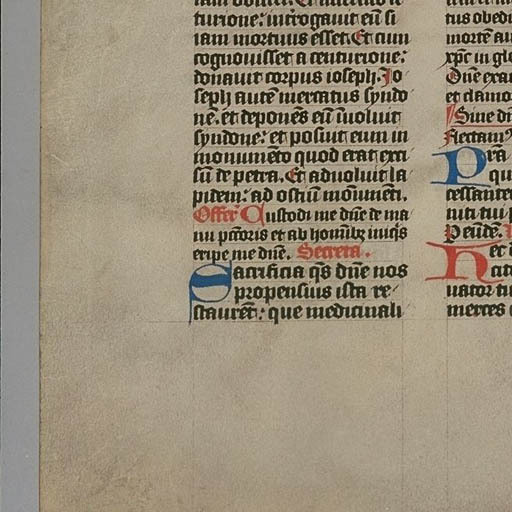 turione: īt͛rogauit eū si
iam mortuus esset. Et cum
cognouisset a centurione:
donauit corpus ioseph. Jo
seph autē mercatus syndo
nē. et deponēs eū īuoluit
syndone: et posuit eum in
monumēto quod erat exci
sū de petra. Et aduoluit la
pidem: ad ostiū monumēti.
Offer͛ Custodi me dñe de ma
nu pctōris et ab hoīnibꝫ iniq̄s
eripe me dñe. Secreta.
Sacrificia q̄s dñe nos
propensius ista re
staurēt: que medicinali
tus obedi
mortē au
xp̄c in glo
Quē exa
et clamo
Siue dn̄
Flectam⁹
Prā
qu
cessante
tuti tui p
P eūde.
Her
uator tu
merces